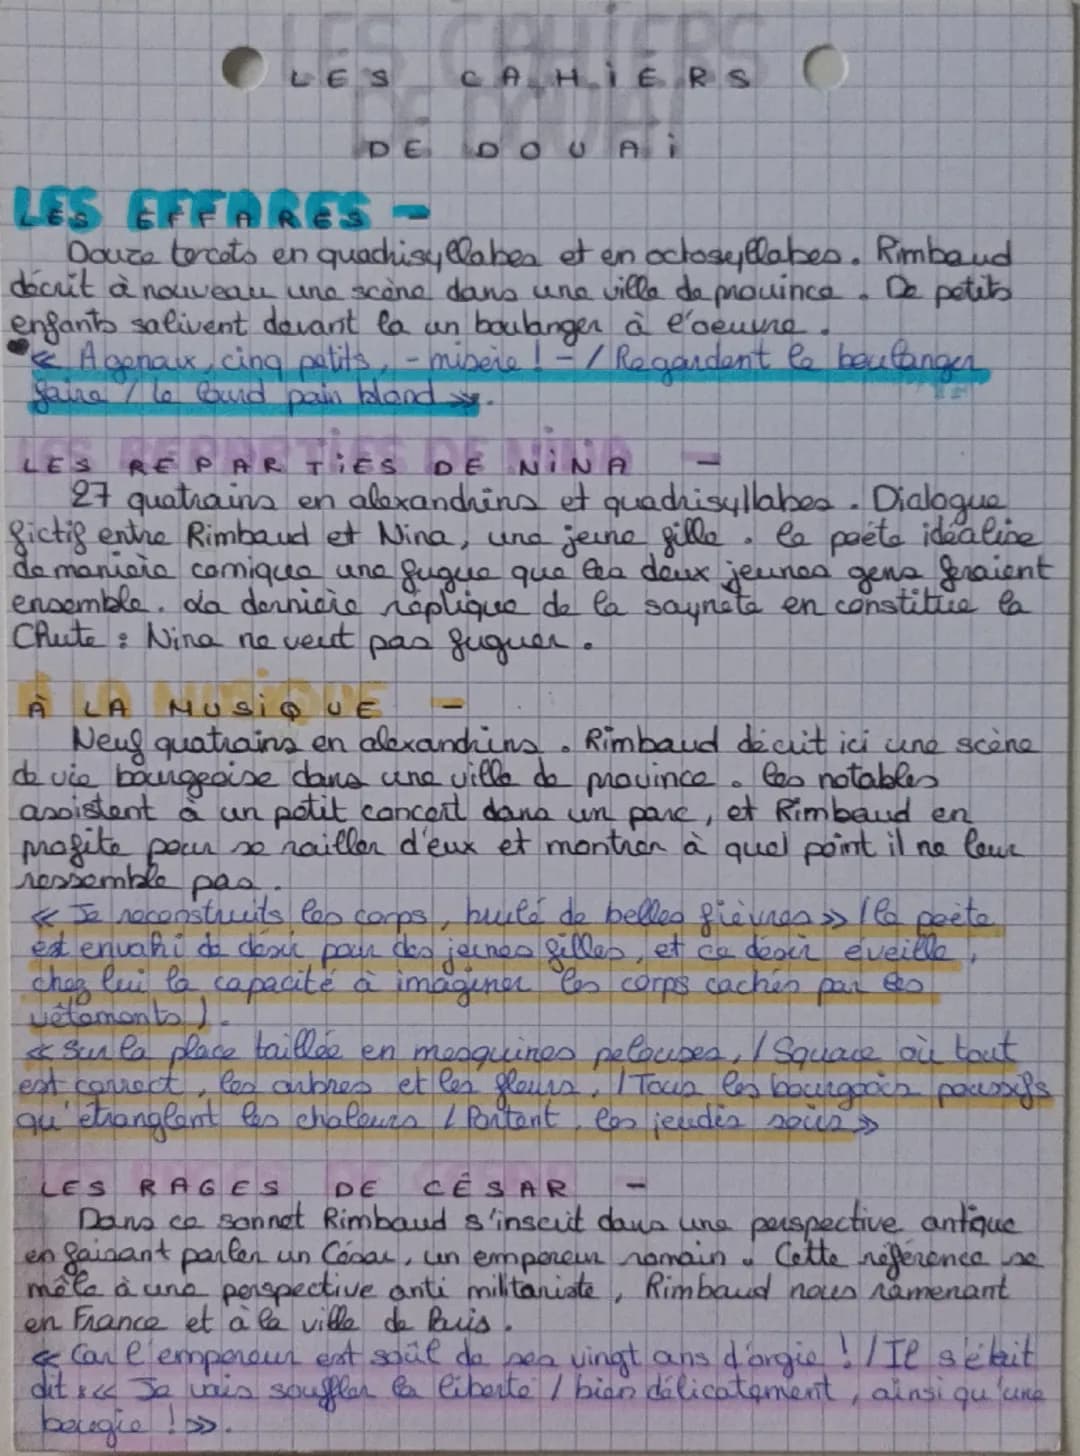 LES CAHiERS
DE DOUAi
LES EFFARES -
Douze tercets en quadrisyllabes et en octosyllabes. Rimbaud
décrit à nouveau une scène dans une ville de province. De petits
enfants salivent devant la un boulanger à l'oeuvre.
« Agenaux, cinq petits, - misère ! - / Regardent le boulanger
faire / le lourd pain blond ».
LES REPARTiES DE NiNA -
27 quatrains en alexandrins et quadrisyllabes. Dialogue
fictif entre Rimbaud et Nina, une jeune fille. le poète idéalise
de manière comique une fugue que les deux jeunes gens feraient
ensemble. La dernière réplique de la saynete en constitue la
Chute : Nina ne veut pas fuguer.
À LA MUSiQUE -
Neuf quatrains en alexandrins. Rimbaud décrit ici une scène
de vie bourgeoise dans une ville de province. les notables
assistent à un petit concert dans un parc, et Rimbaud en
profite pour se railler d'eux et montrer à quel point il ne leur
ressemble pas.
« Je reconstruits les corps, brulé de belles fièvres » (le poète
est envahi de désir pour des jeunes filles, et ce désir éveille
chez lui la capacité à imaginer les corps cachés par les
vêtements).
« Sur la place taillée en mesquines pelouses, / Square où tout
est correct, les arbres et les fleurs, / Tous les bourgeois poussifs
qu'étranglent les chaleurs / Portent, les jeudis soirs »
LES RAGES DE CÉSAR -
Dans ce sonnet Rimbaud s'inscrit dans une perspective antique
en faisant parler un César, un empereur romain. Cette référence se
mêle à une perspective anti militariste, Rimbaud nous ramenant
en France et à la ville de Paris.
« Car l'empereur est soûl de ses vingt ans d'orgie ! / Il s'était
dit : « Je vais souffler la liberté / bien délicatement, ainsi qu'une
bougie ! ».